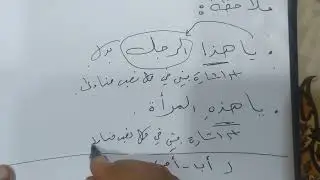 ملاحظة :
• يا هذا الرجل بدل
اسم اشارة مبني في محل نصب منادى
• يا هذهِ المرأة .
اسم اشارة مبني في محل نصب منادى